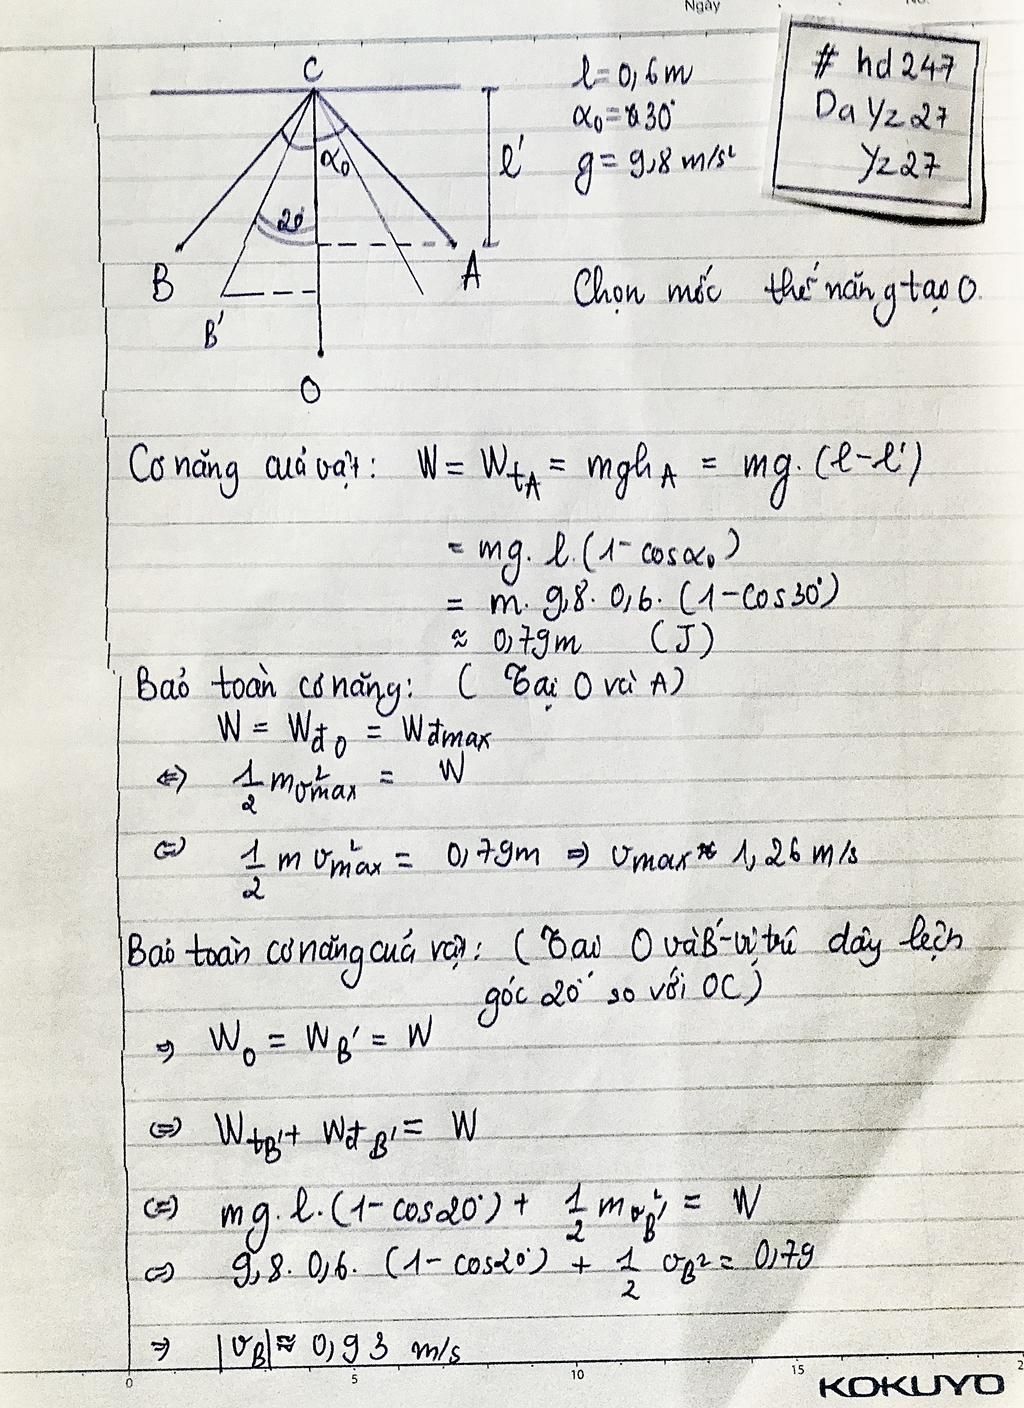 Ngày No.
# hd247
Da Yz27
Yz27
C
l = 0,6m
α₀ = 30°
g = 9,8 m/s²
α₀
l'
20°
B
A
B'
O
Chọn mốc thế năng tạo O.
Cơ năng củả vật: W = WtA = mghA = mg.(l-l')
= mg.l.(1-cosα₀)
= m. 9,8. 0,6. (1-cos30°)
≈ 0,79m (J)
Bảo toàn cơ năng: ( Tại O và A)
W = Wđ0 = Wđmax
⇔ 1/2 mv²max = W
⇔ 1/2 m v²max = 0,79m ⇒ vmax ≈ 1,26 m/s
Bảo toàn cơ năng củả vật: ( Tại O và B'-vị trí dây lệch
góc 20° so với OC)
⇒ W₀ = WB' = W
⇔ WtB' + WđB' = W
⇔ mg.l.(1-cos20°) + 1/2 mvB'² = W
⇔ 9,8. 0,6. (1-cos20°) + 1/2 vB² = 0,79
⇒ |vB| ≈ 0,93 m/s
0 5 10 15 2
KOKUYO